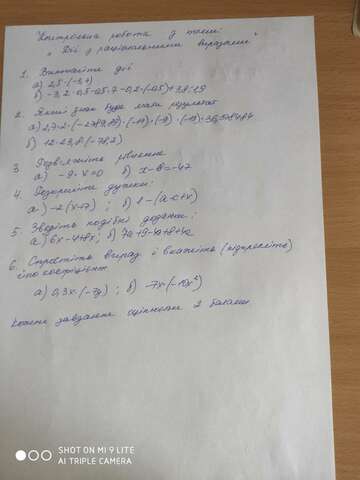 Контрольна робота з теми:
„Дії з раціональними виразами"
1. Виконайте дії
а) 2,5·(-3,4)
2. Який знак буде мати результат
б) 12·23,8(-78,2)
3. Розв'яжіть рівняння
а) -9·x=0 б) x-8=-47
4. Розкрийте дужки:
а) -2(x+7) ; б) 1-(a-c+x)
5. Зведіть подібні доданки:
а) 6x-4+8x; б)
6. Спростіть вираз і вкажіть (підкресліть)
його коефіцієнт
а) 0,3x·(-7y) ; б) -7x·(-10x²)
Кожне завдання оцінюєм 2 балами
SHOT ON MI 9 LITE
AI TRIPLE CAMERA